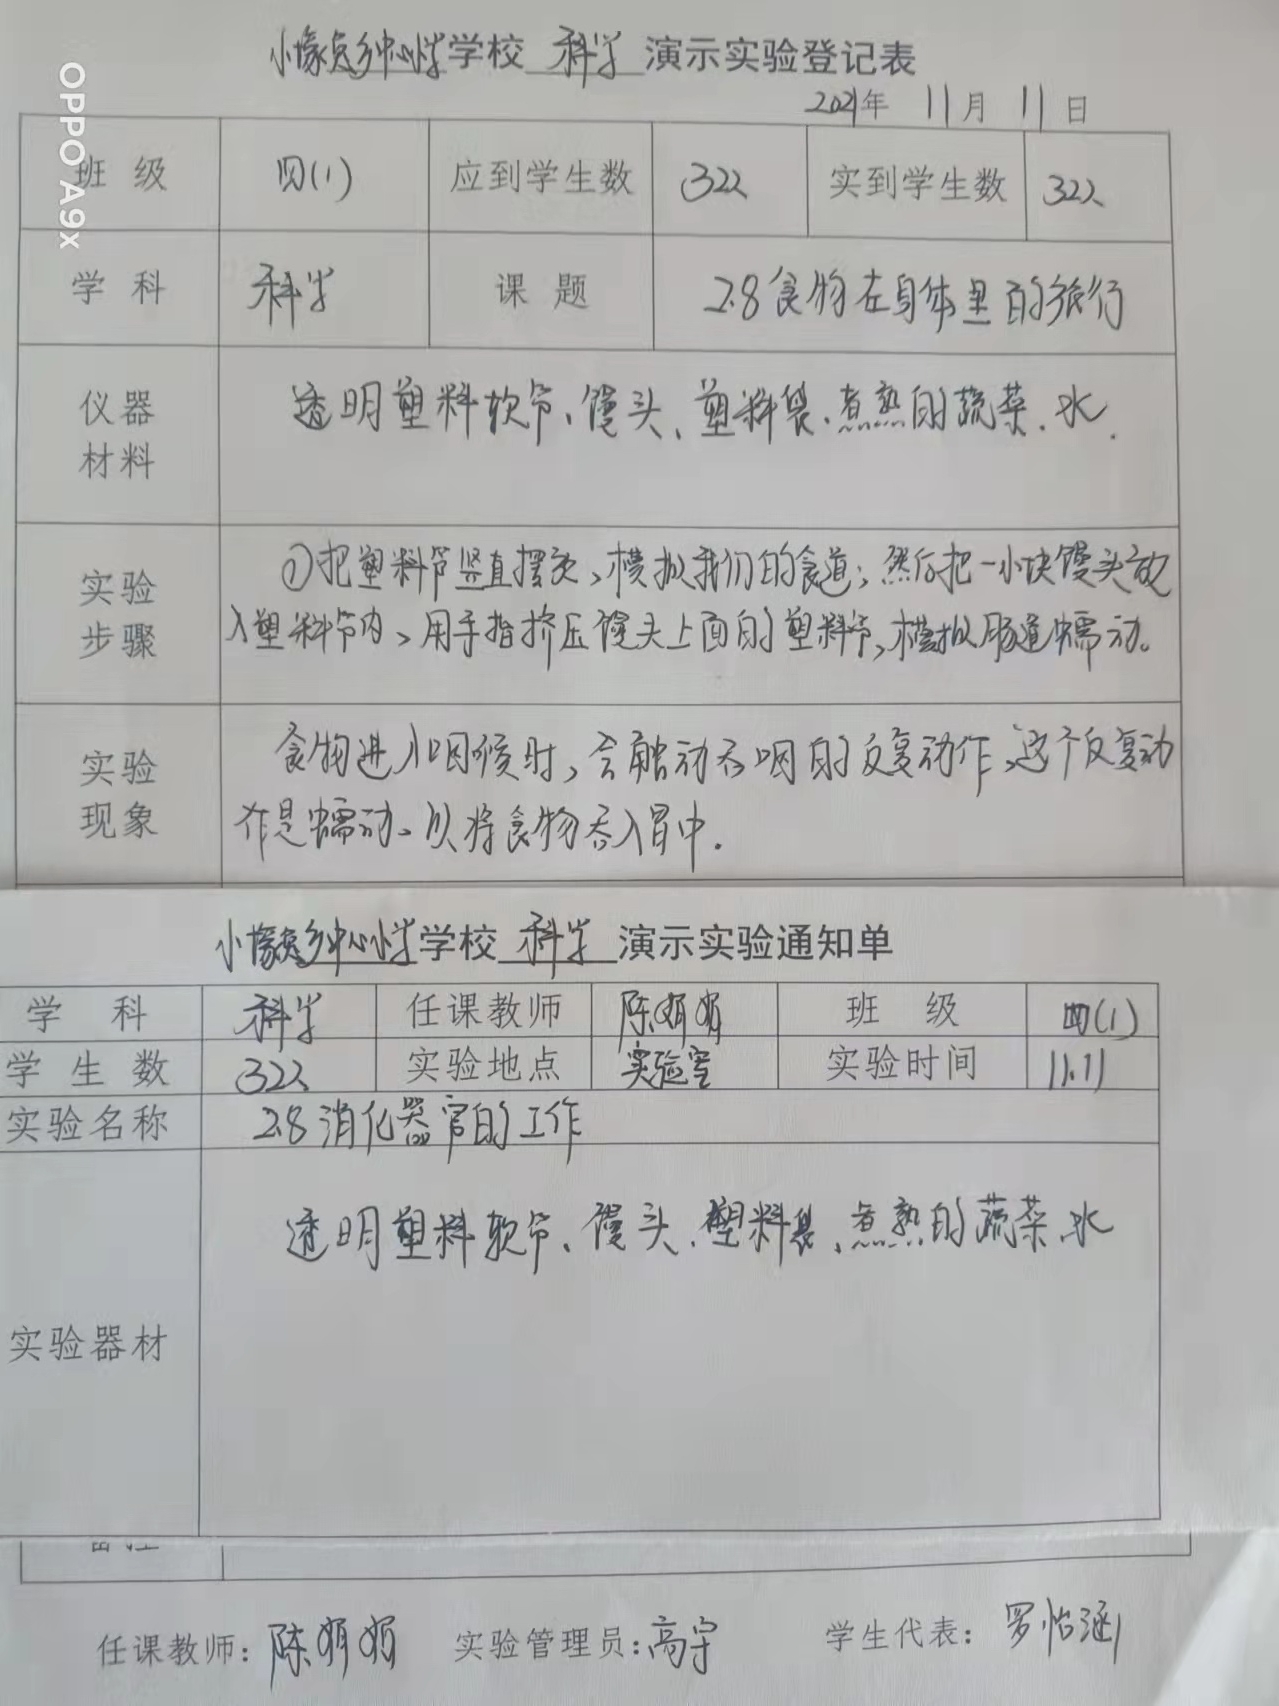 OPPO A9x
小象乡中心小学学校 科学 演示实验登记表
2021年 11月 11日
班 级 四(1) 应到学生数 32人 实到学生数 32人
学 科 科学 课 题 2.8食物在身体里的旅行
仪器
材料
透明塑料软管、馒头、塑料袋、煮熟的蔬菜、水.
实验
步骤
①把塑料管竖直摆放、模拟我们的食道；然后把一小块馒头放
入塑料管内、用手指挤压馒头上面的塑料管、模拟肠道蠕动。
实验
现象
食物进入咽喉时、会触动吞咽的反复动作、这个反复动
作是蠕动、以将食物吞入胃中.
中心小学学校 科学 演示实验通知单
学 科 科学 任课教师 陈娟娟 班 级 四(1)
学 生 数 32人 实验地点 实验室 实验时间 11.11
实验名称 2.8消化器官的工作
透明塑料软管、馒头、塑料袋、煮熟的蔬菜、水
实验器材
任课教师: 陈娟娟 实验管理员: 高宇 学生代表: 罗怡涵